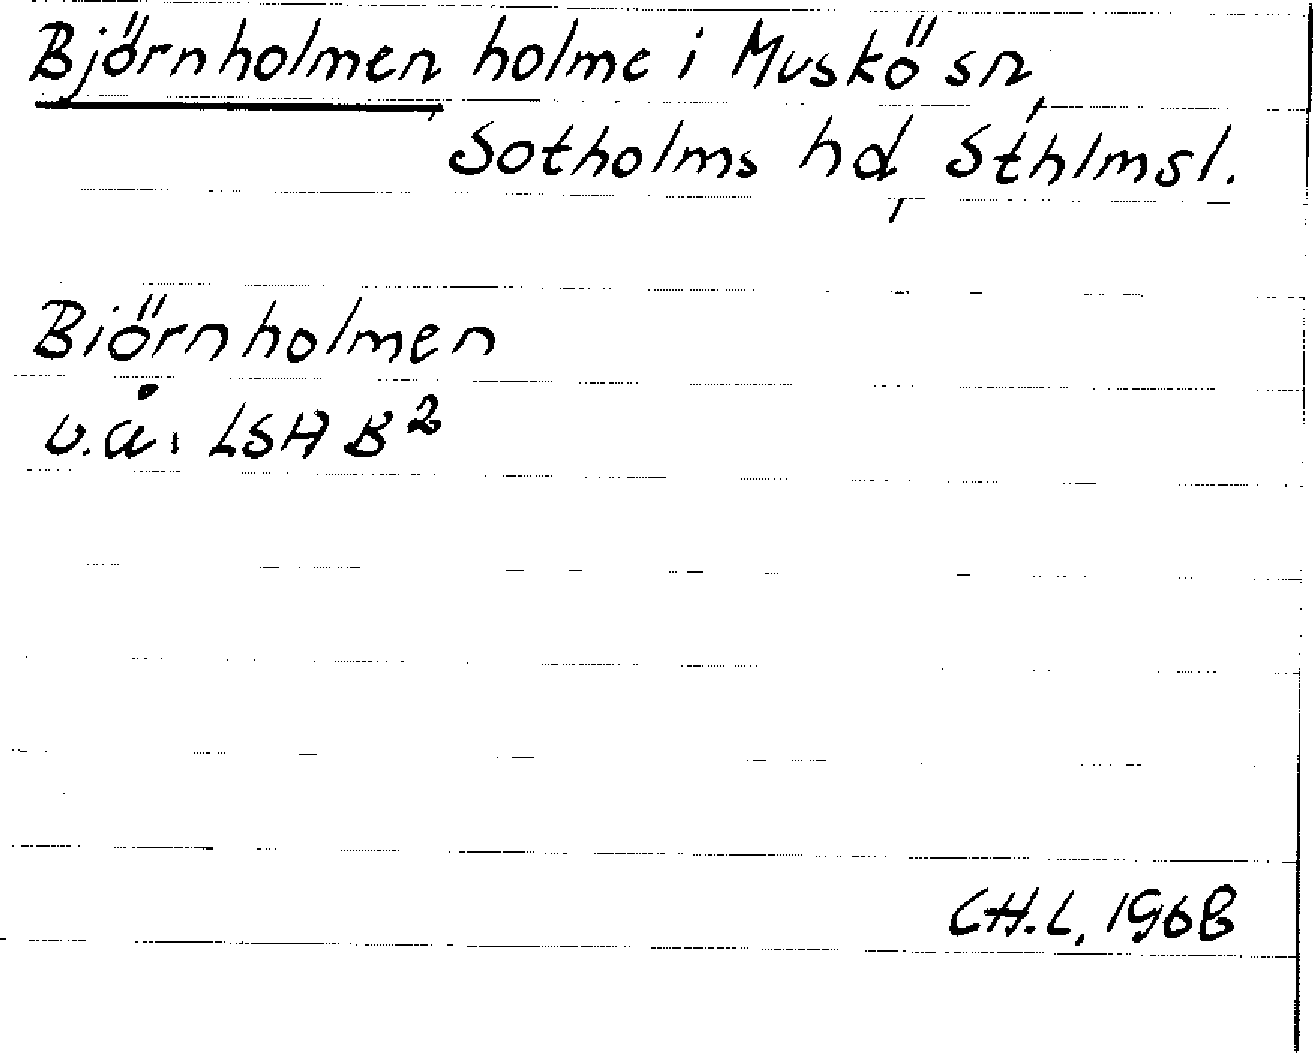 Björnholmen holme i Muskö sn,
Sotholms hd, Sthlmsl.
Biörnholmen
u.å. LSH B²
CH.L, 1968